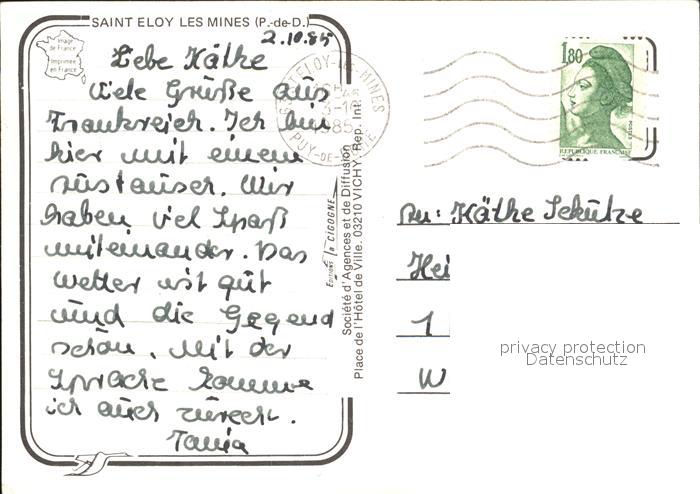 SAINT ELOY LES MINES (P.-de-D.)
Image
de France
Imprimée
en France
2.10.85
Liebe Käthe
Viele Grüße aus
Frankreich. Ich bin
hier mit einem
Wir
haben viel Spaß
miteinander. Das
Wetter ist gut
und die Gegend
schön. Mit der
Sprache komme
ich auch zurecht.
Tania
ELOY-LES-MINES
PUY-DE-
85
EDITIONS la CIGOGNE
Société d'Agences et de Diffusion
Place de l'Hôtel de Ville. 03210 VICHY. Rep. Int.
1,80
POSTES
REPUBLIQUE FRANÇAISE
An: Käthe Schütze
Hei
1
W
privacy protection
Datenschutz